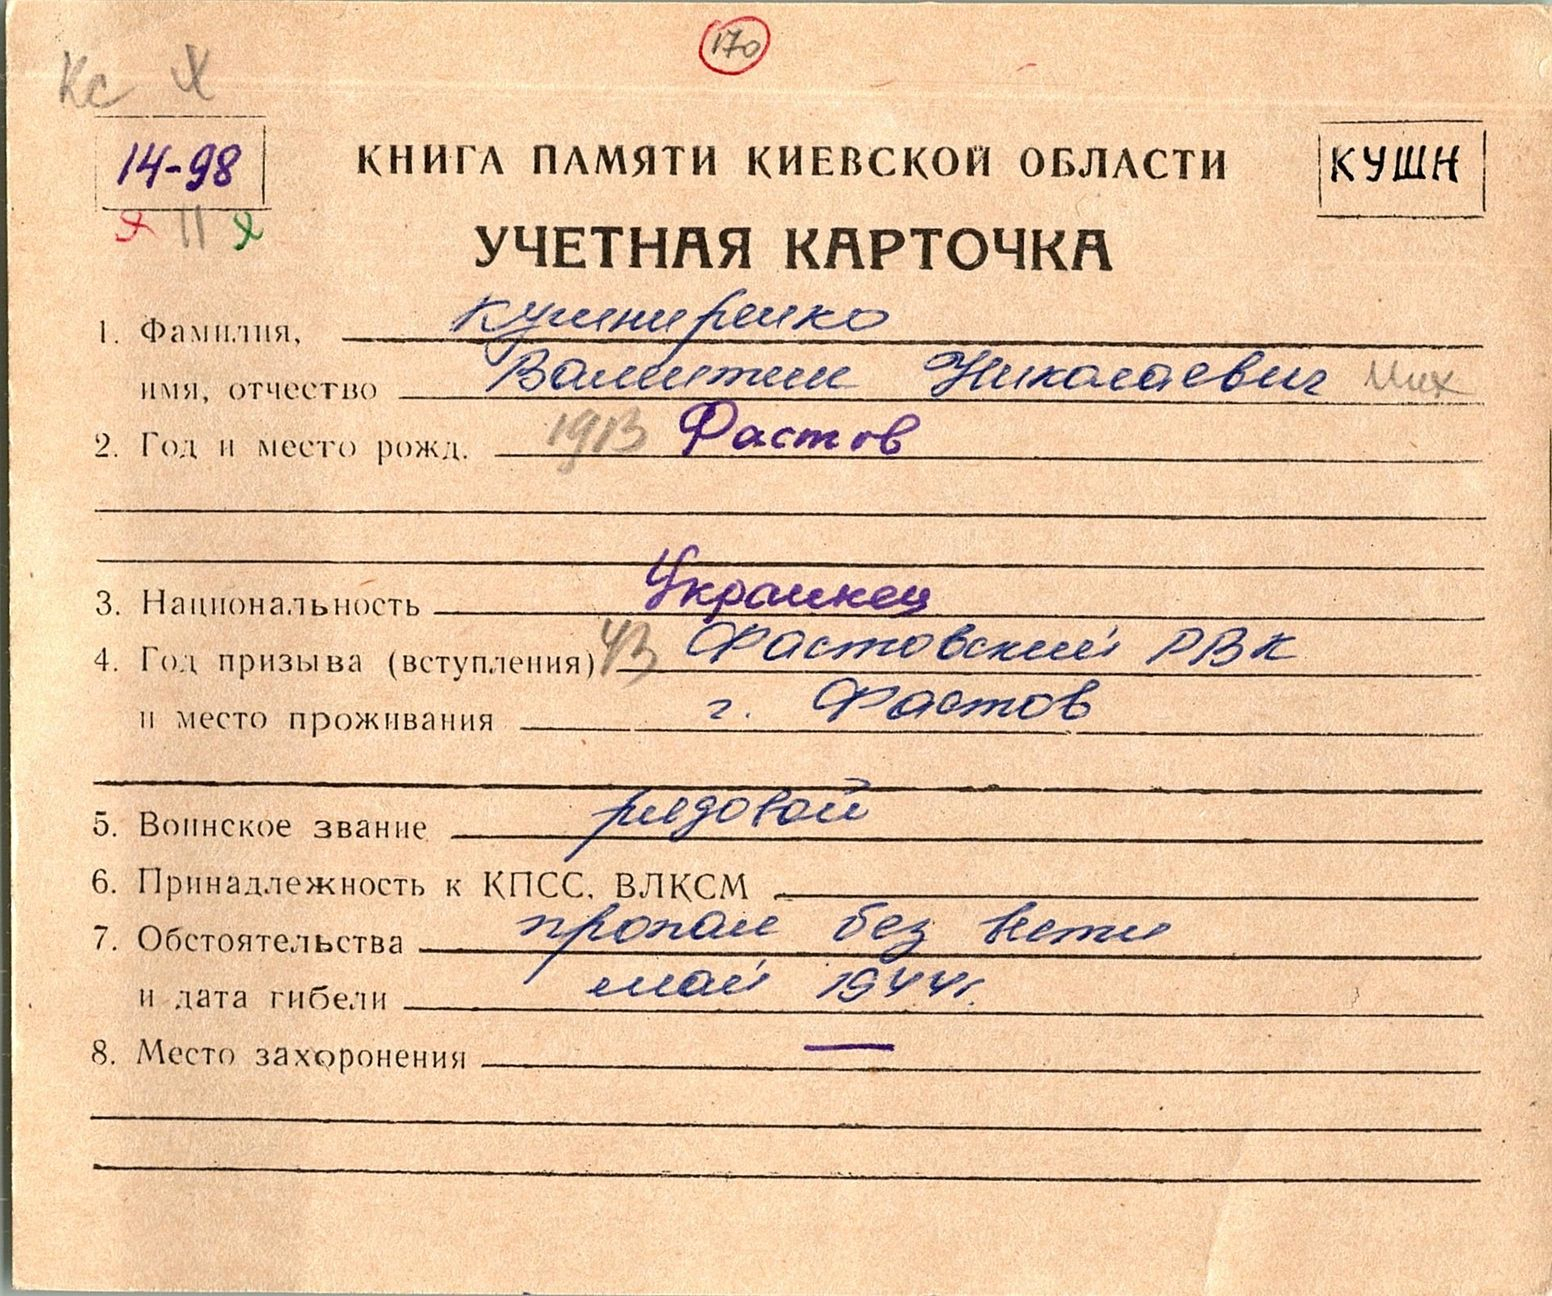 Кс Х
170
14-98
КНИГА ПАМЯТИ КИЕВСКОЙ ОБЛАСТИ
КУШН
УЧЕТНАЯ КАРТОЧКА
1. Фамилия, Кушниренко
имя, отчество Валентин Николаевич Мих
2. Год и место рожд. 1913 Фастов
3. Национальность Украинец
4. Год призыва (вступления) 43 Фастовский РВК
и место проживания г. Фастов
5. Воинское звание рядовой
6. Принадлежность к КПСС, ВЛКСМ
7. Обстоятельства пропал без вести
и дата гибели май 1944г.
8. Место захоронения —